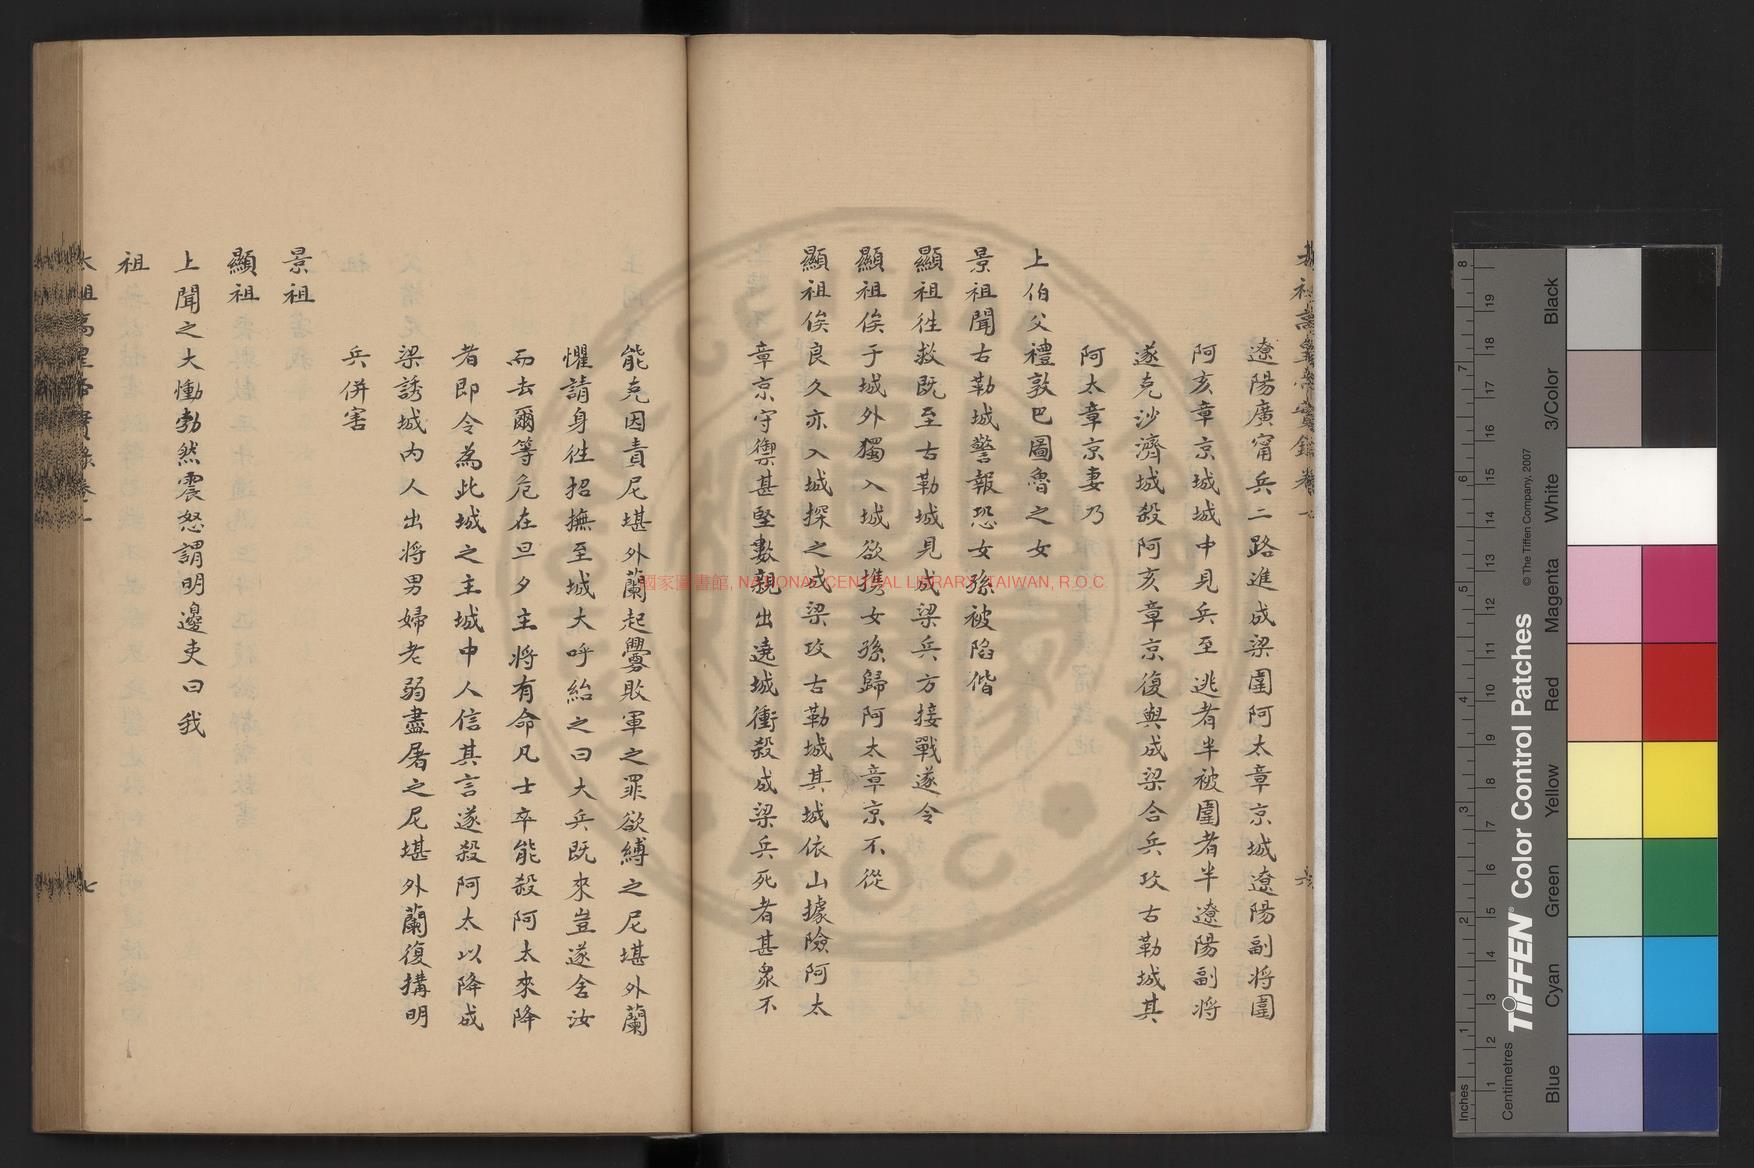 遼陽廣甯兵二路進成梁圍阿太章京城遼陽副將圍
阿亥章京城城中見兵至逃者半被圍者半遼陽副將
遂克沙濟城殺阿亥章京復與成梁合兵攻古勒城其
阿太章京妻乃
上伯父禮敦巴圖魯之女
景祖聞古勒城警報恐女孫被陷偕
顯祖徃救既至古勒城見成梁兵方接戰遂令
顯祖俟于城外獨入城欲携女孫歸阿太章京不從
顯祖俟良久亦入城探之成梁攻古勒城其城依山據險阿太
章京守禦甚堅數親出遶城衝殺成梁兵死者甚衆不
能克因責尼堪外蘭起釁敗軍之罪欲縛之尼堪外蘭
懼請身徃招撫至城大呼紿之曰大兵既來豈遂舍汝
而去爾等危在旦夕主將有命凡士卒能殺阿太來降
者即令為此城之主城中人信其言遂殺阿太以降成
梁誘城內人出將男婦老弱盡屠之尼堪外蘭復搆明
兵併害
景祖
顯祖
上聞之大慟勃然震怒謂明邊吏曰我
祖
七
國家圖書館, NATIONAL CENTRAL LIBRARY, TAIWAN, R.O.C.
Inches
Centimetres
TIFFEN® Color Control Patches
© The Tiffen Company, 2007
Blue
Cyan
Green
Yellow
Red
Magenta
White
3/Color
Black